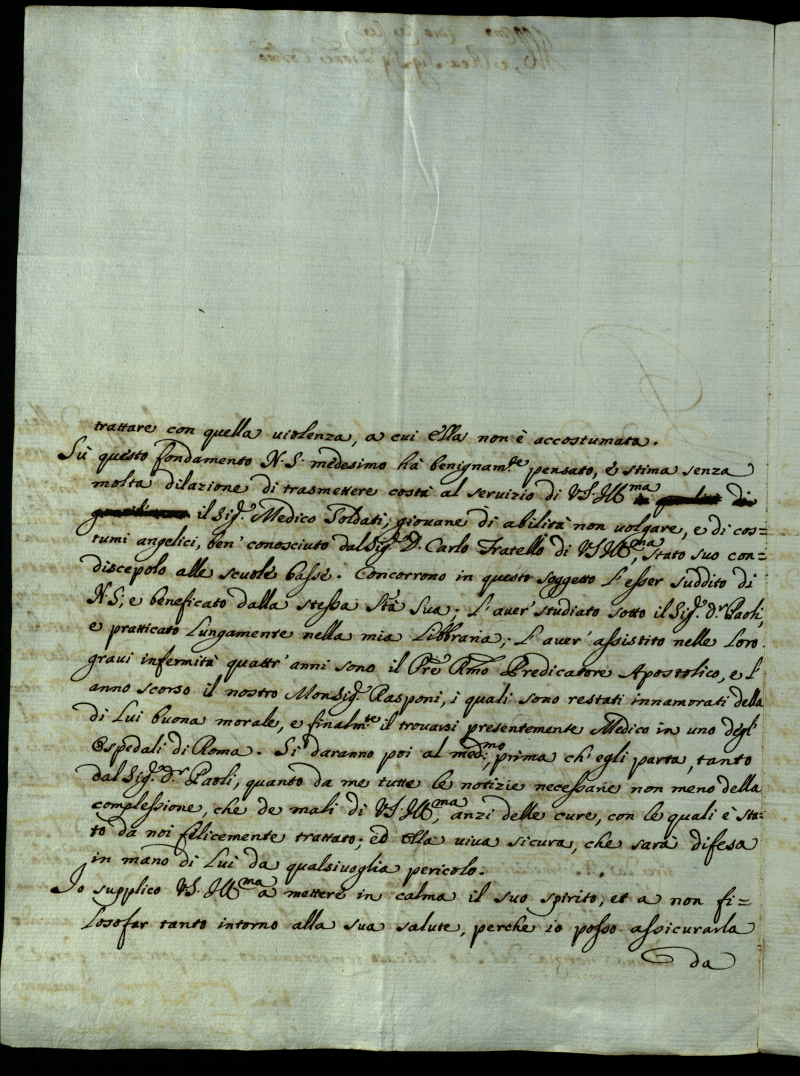 trattare con quella violenza, a cui ella non è accostumata.
Sù questo fondamento N. S. medesimo hà benignam.te pensato, e stima senza
molta dilazione di trasmettere costà al servizio di VS. Ill.ma
il Sig.r Medico Soldati, giovane di abilità non volgare, e di cos=
tumi angelici, ben' conosciuto dal Sig.r D. Carlo Fratello di VS. Ill.ma, stato suo con=
discepolo alle scuole basse. Concorrono in questo soggetto l'esser suddito di
N. S., e beneficato dalla stessa Stà Sua. L'aver' studiato sotto il Sig.r D.r Paoli,
e pratticato lungamente nella mia Libbraria; L'aver' assistito nelle loro
gravi infermità quattr' anni sono il Pre Rmo Predicatore Apostolico, e l'
anno scorso il nostro Monsig.r Rasponi, i quali sono restati innamorati della
di Lui buona morale, e finalm.te il trovarsi presentemente Medico in uno degl'
Ospedali di Roma. Si daranno poi al med.mo, prima ch' egli parta, tanto
dal Sig.r D.r Paoli, quanto da me tutte le notizie necessarie non meno della
complessione, che de mali di VS. Ill.ma, anzi delle cure, con le quali è sta=
to da noi felicemente trattato; ed ella viva sicura, che sarà difesa
in mano di Lui da qualsivoglia pericolo.
Io supplico VS. Ill.ma a mettere in calma il suo spirito, et a non fi=
losofar tanto intorno alla sua salute, perchè io posso assicurarla
da